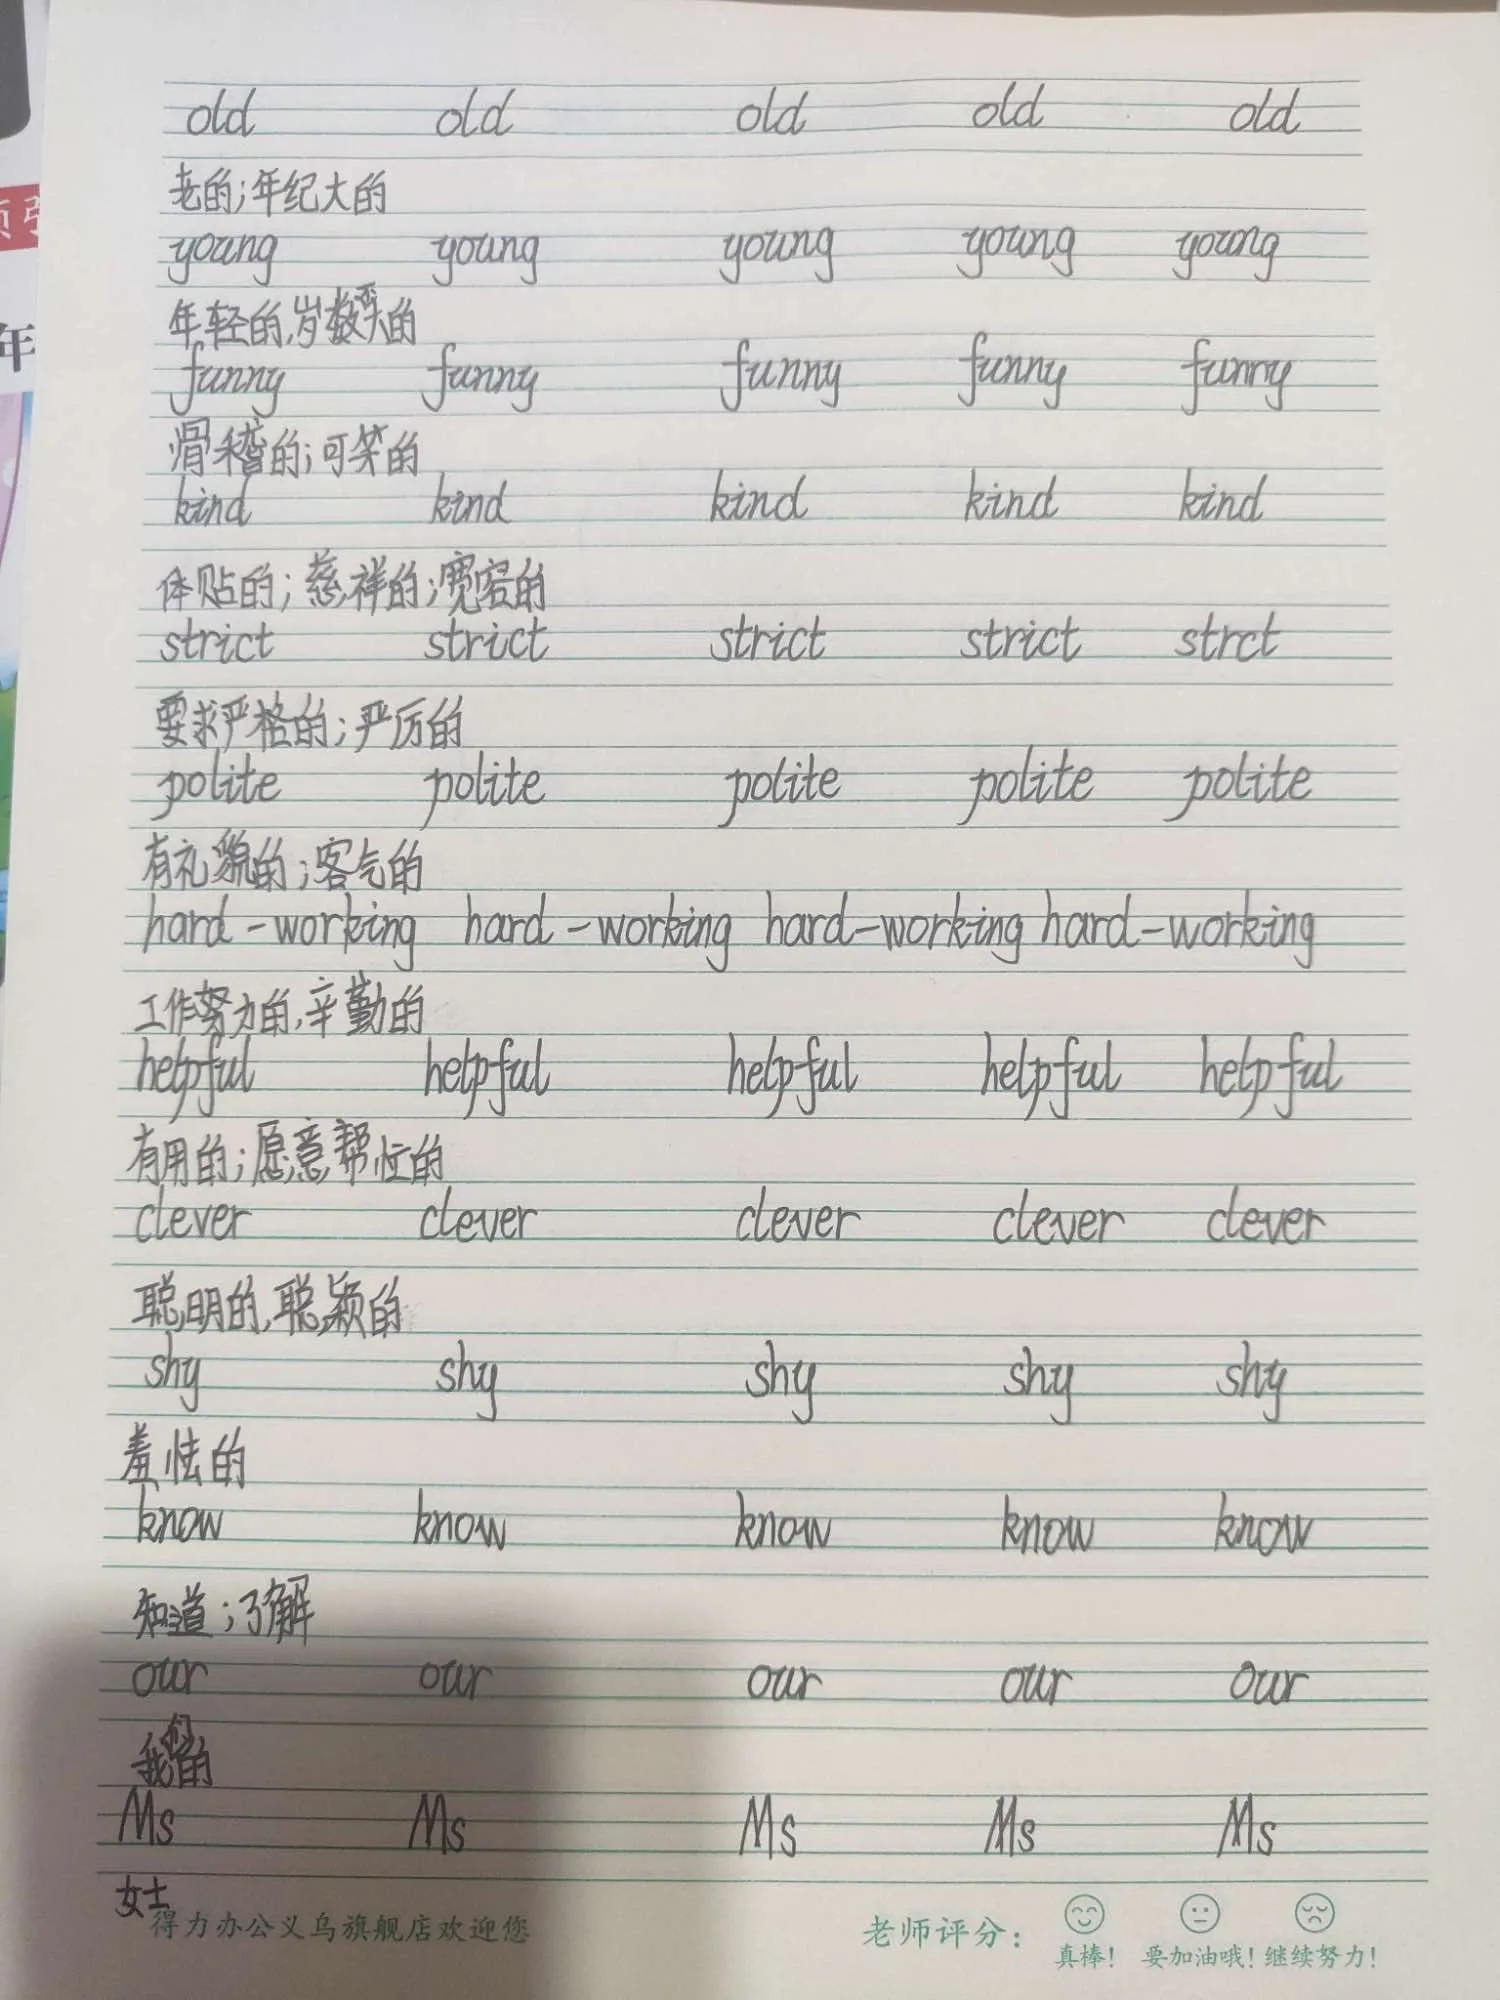 old old old old old
老的；年纪大的
young young young young young
年轻的,岁数不大的
funny funny funny funny funny
滑稽的；可笑的
kind kind kind kind kind
体贴的；慈祥的；宽容的
strict strict strict strict strct
要求严格的；严厉的
polite polite polite polite polite
有礼貌的；客气的
hard-working hard-working hard-working hard-working
工作努力的,辛勤的
helpful helpful helpful helpful helpful
有用的；愿意帮忙的
clever clever clever clever clever
聪明的,聪颖的
shy shy shy shy shy
羞怯的
know know know know know
知道；了解
our our our our our
我们的
Ms Ms Ms Ms Ms
女士
得力办公义乌旗舰店欢迎您 老师评分：
真棒！ 要加油哦！ 继续努力！
年